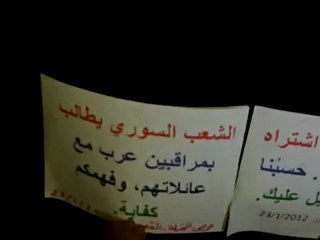 الشعب السوري يطالب
بمراقبين عرب مع
عائلاتهم، وفهمكم
كفاية.
اشتراه
. حسبُنا
يل عليك.
23/1/2012